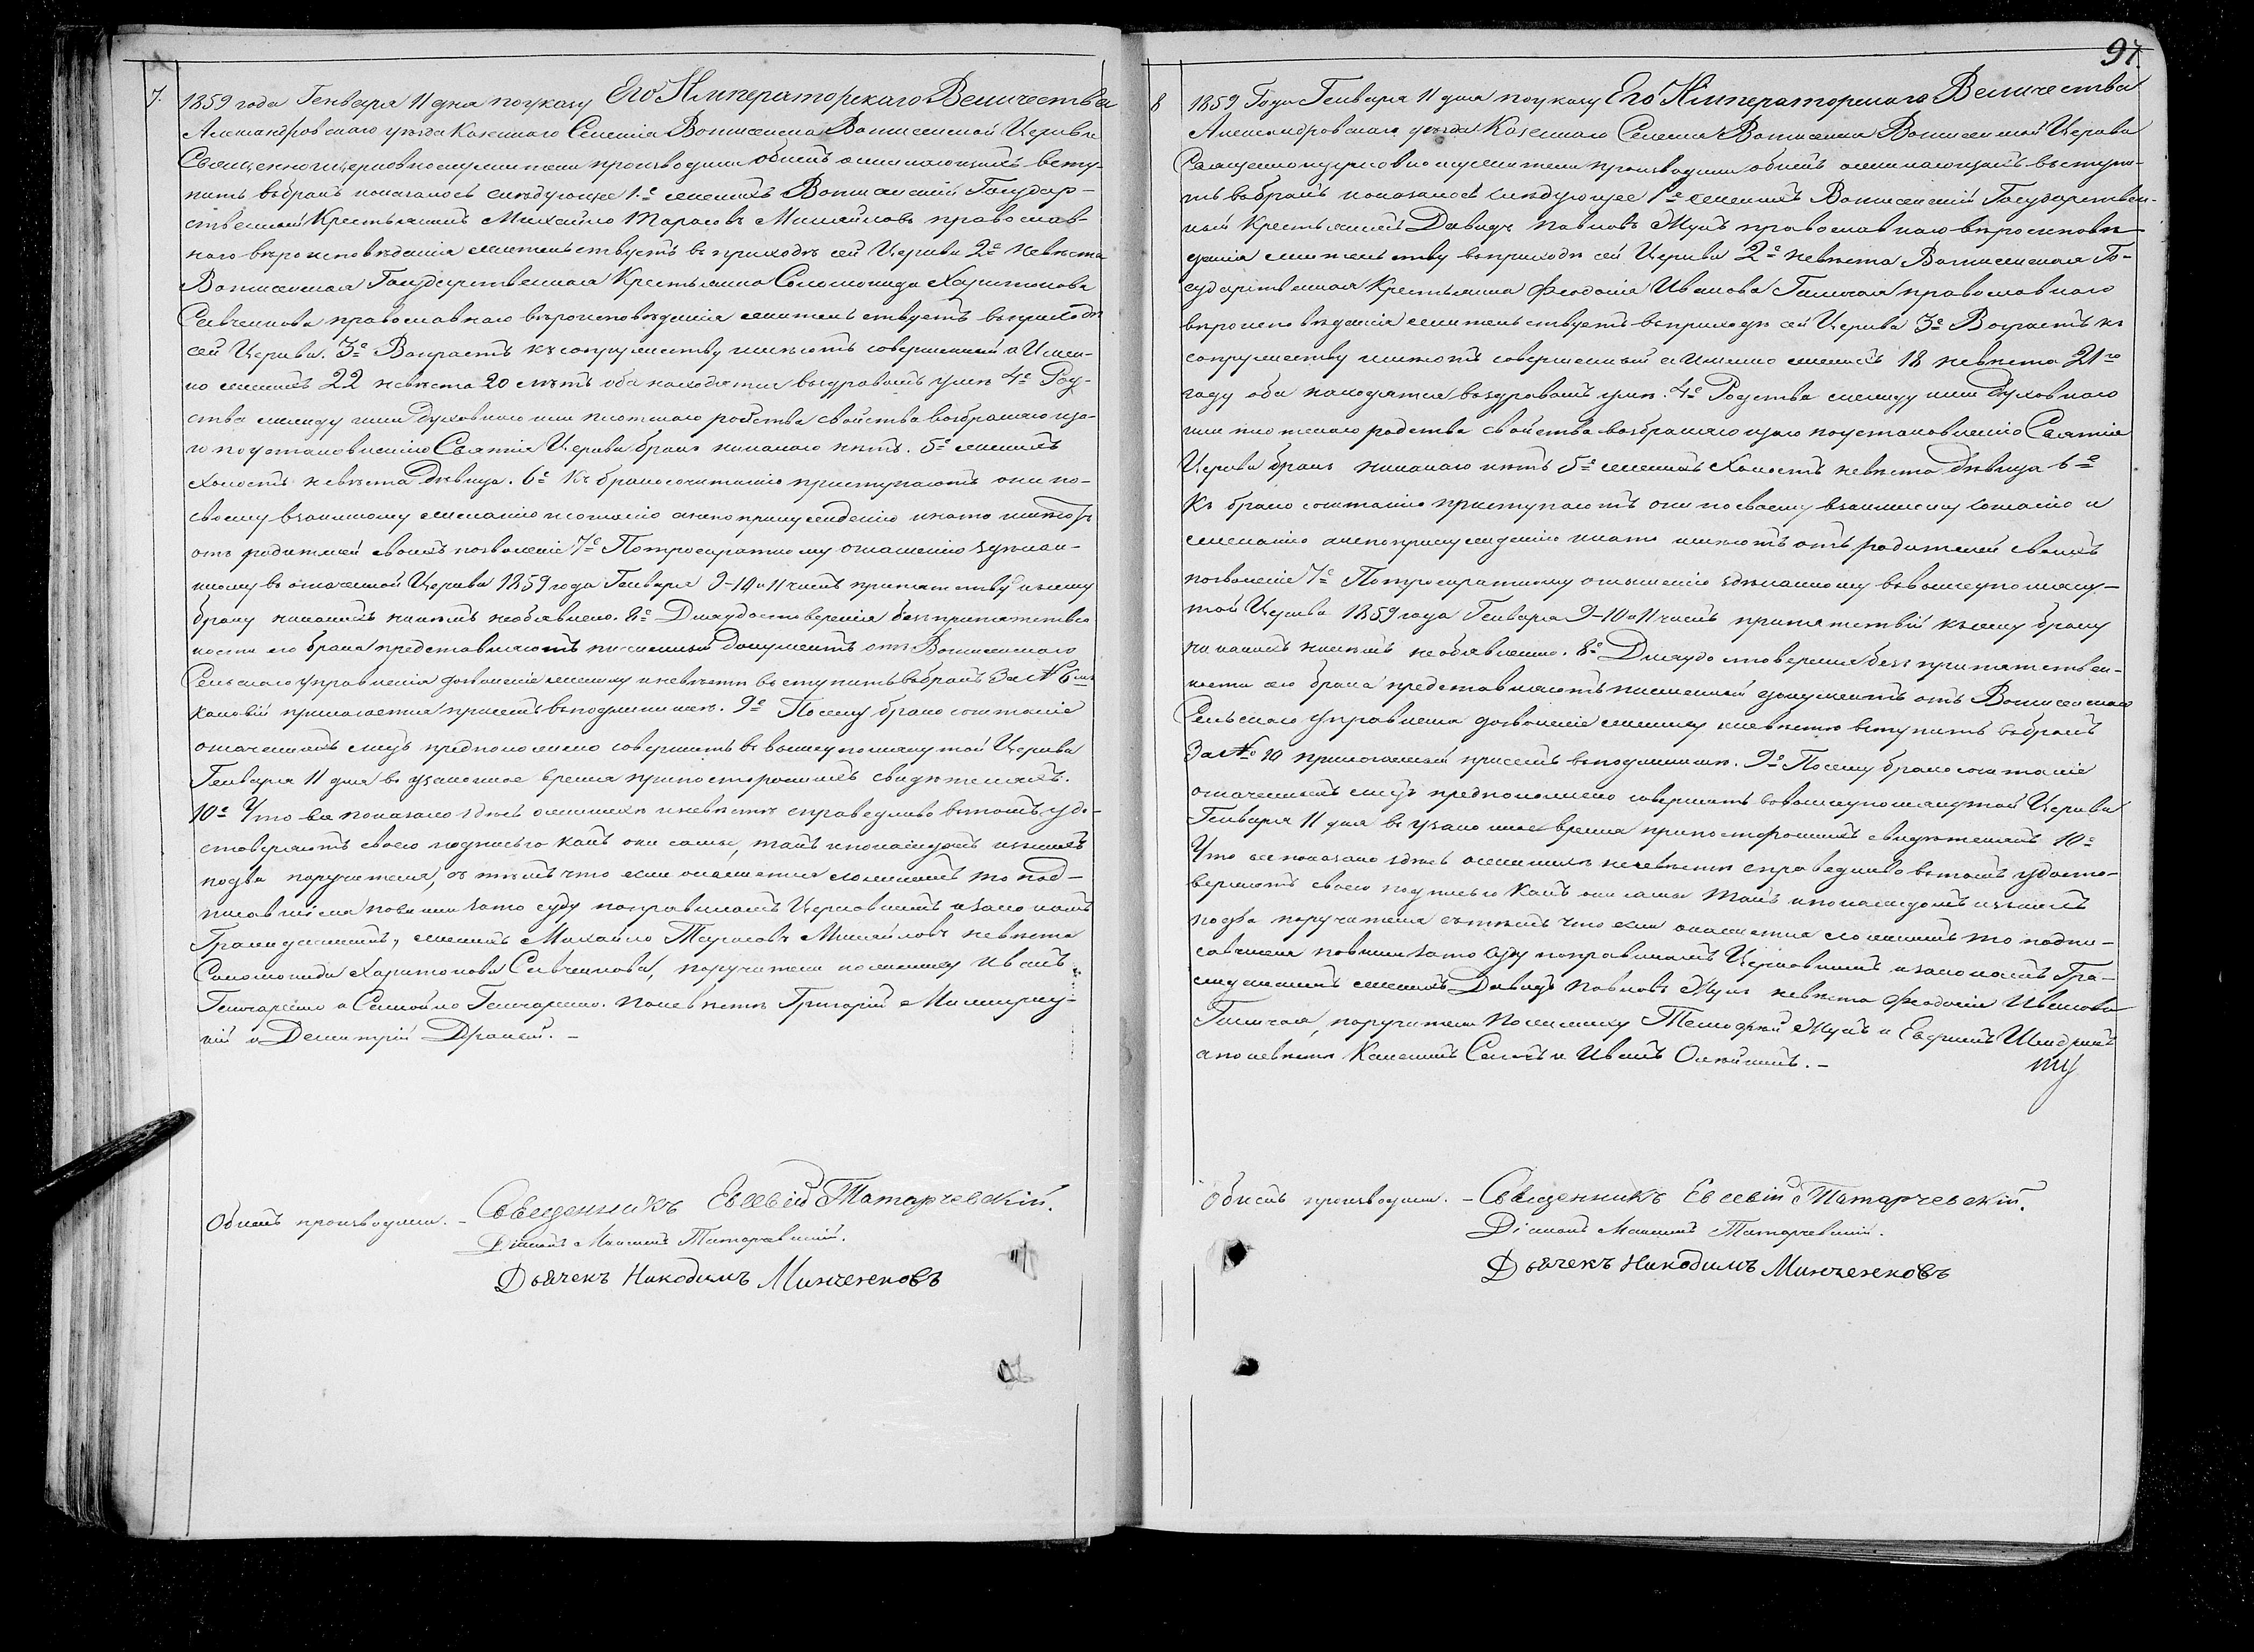 7.
1859 года Генваря 11 дня по указу Его Императорскаго Величества
Александровскаго уезда Казеннаго Селенія Воскресенской Церкви
Священноицерковнослужители производили обыскъ о желающихъ всту-
пить въ бракъ показалось следующее 1.е женихъ Государ-
ственный Крестьянинъ Михайло Тарасовъ Михайловъ православ-
наго вѣроисповѣданія жительствуетъ въ приходѣ сей Церкви 2е Невѣста
Государственная Крестьянка Соломонида Харитонова
Савченкова православнаго вѣроисповѣданія жительствуетъ въ приходѣ
сей Церкви. 3е Возрастъ къ супружеству имѣютъ совершенный а Имен-
но женихъ 22 невѣста 20 лѣтъ оба находятся въ здравомъ умѣ 4е Род-
ства между ими духовнаго или плотскаго родства свойства возбраняюща-
го по установленію Святія Церкви бракъ никакого нѣтъ. 5е женихъ
холостъ невѣста дѣвица. 6е Къ бракосочетанію приступаютъ они по-
своему взаимному желанію и согласію а не по принужденію и на то имѣютъ
отъ родителей своихъ позволеніе 7е По троекратному оглашенію здѣлан-
ному въ означенной Церкви 1859 года Генваря 9-10 и 11 числъ препятствій къ сему
браку никакихъ никѣмъ необъявлено. 8е Для удостоверенія безпрепятствен
ности его брака представляютъ письменный документъ отъ
Сельскаго управленія дозволеніе жениху и невѣстѣ вступить въ бракъ За № 6мъ
каковій прилагается при семъ въ подлинникѣ. 9е По сему бракосочетаніе
означенныхъ лицъ предположено совершить въ вышеупомянутой Церкви
Генваря 11 дня въ узаконное время при постороннихъ свидѣтеляхъ.
10е Что все показано здѣсь о женихѣ и невѣстѣ справедливо въ томъ удо-
стоверяютъ своею подписью какъ они сами, такъ и по каждомъ изъ нихъ
по два поручителя, съ тѣмъ что если окажется ложнымъ то под-
писавшіеся повинны за то суду по правиламъ Церковнымъ и законамъ
Гражданскимъ, женихъ Михайло Тарасовъ Михайловъ невѣста
Соломонида Харитонова Савченкова, поручители по женихѣ Иванъ
Гончаренко и Самойло Гончаренко. По невѣстѣ Григорій
и Димитрій
Обыскъ производили. - Священникъ Евсевій Татарчевскій.
Діаконъ Максимъ Татарчевскій.
Дьячекъ Никодимъ Минченковъ
97.
8
1859 Года Генваря 11 дня по указу Его Императорскаго Величества
Александровскаго уезда Казеннаго Селенія Церкви
Священноицерковнослужители производили обыскъ о желающихъ вступи-
ть въ бракъ показалось следующее 1е женихъ Государствен-
ный Крестьянинъ Давидъ Павловъ Жукъ православнаго вѣроисповѣ
данія жительству въ приходѣ сей Церкви 2е невѣста Го-
сударственная Крестьянка Феодосія Иванова православнаго
вѣроисповѣданія жительствуетъ въ приходѣ сей Церкви 3е Возрастъ къ
супружеству имѣютъ совершенный а имянно женихъ 18 невѣста 21го
году оба находятся въ здравомъ умѣ. 4е Родства между ими духовнаго
или плотскаго родства свойства возбраняющаго по установленію Святія
Церкви бракъ никакого нѣтъ 5е женихъ Холостъ невѣста дѣвица 6е
Къ бракосочетанію приступаютъ они по своему взаимному согласію и
желанію а не по принужденію и на то имѣютъ отъ родителей своихъ
позволеніе 7е По троекратному оглашенію здѣланному въ вышеупомяну-
той Церкви 1859 года Генваря 9-10 и 11 числъ препятствій къ сему браку
никакихъ никѣмъ необъявлено. 8е Для удостоверенія безпрепятствен-
ности его брака представляютъ письменный документъ отъ
Сельскаго управленія дозволеніе жениху и невѣстѣ вступить въ бракъ
За № 10 прилагаемый при семъ въ подлинникѣ. 9е По сему бракосочетаніе
означенныхъ лицъ предположено совершить въ вышеупомянутой Церкви
Генваря 11 дня въ узаконное время при постороннихъ свидѣтеляхъ 10е
Что все показано здѣсь о женихѣ и невѣстѣ справедливо въ томъ удосто-
веряютъ своею подписью какъ они сами такъ и по каждомъ изъ нихъ
по два поручителя съ тѣмъ что если окажется ложнымъ то подпи-
савшіеся повинны за то суду по правиламъ Церковнымъ и законамъ Гра-
жданскимъ женихъ Давидъ Павловъ Жукъ невѣста Феодосія Иванова
поручители По жениху Тимофей Жукъ и Евфимъ
а по невѣстѣ и Иванъ
Обыскъ производили. - Священникъ Евсевій Татарчевскій.
Діаконъ Максимъ Татарчевскій.
Дьячекъ Никодимъ Минченковъ